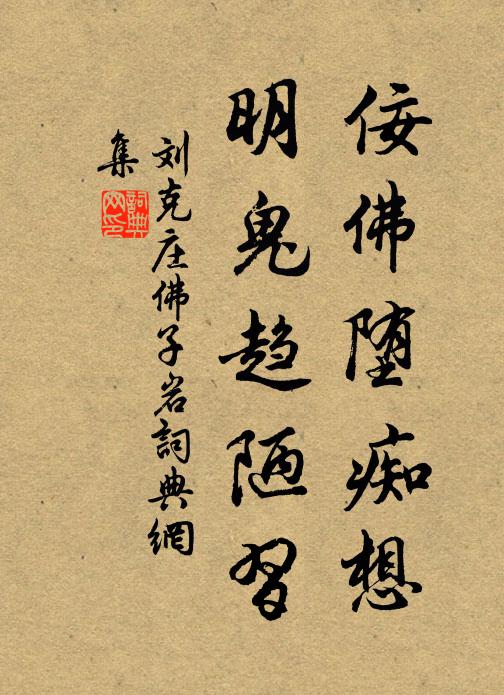 佞佛堕痴想
明鬼趋陋習
刘克庄佛子岩詞典網
集
詞典网印